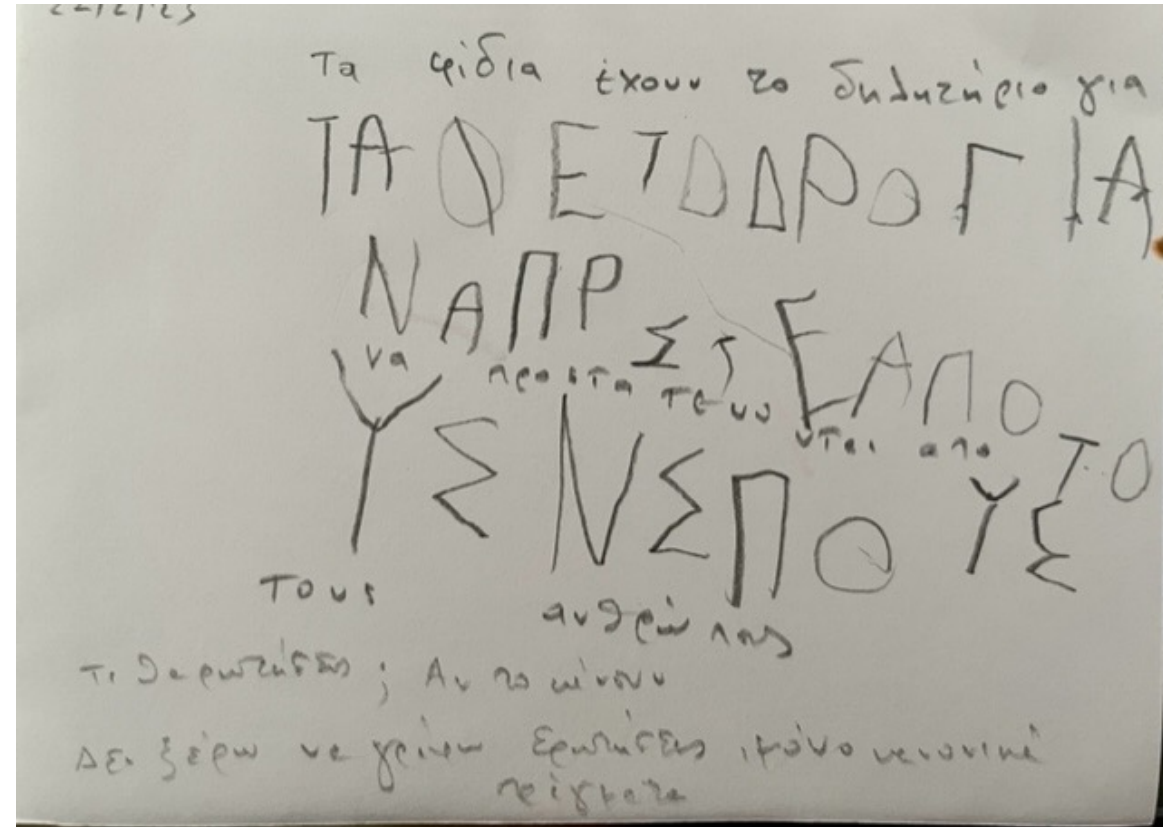 22/2/23
Τα φίδια έχουν το δηλητήριο για
ΤΑ Φ Ε Τ Ο Δ Ρ Ο Γ ΙΑ
ΝΑ Π Ρ Σ Τ Ε ΑΠΟ ΤΟ
να προστατευονται απο
ΥΣ ΝΣΠΟΥΣ
τους ανθρώπους
Τι θα ρωτήσεις ; Αν το κάνουν
Δεν ξέρω να γράφω ερωτήσεις , μόνο κανονικά
πράγματα